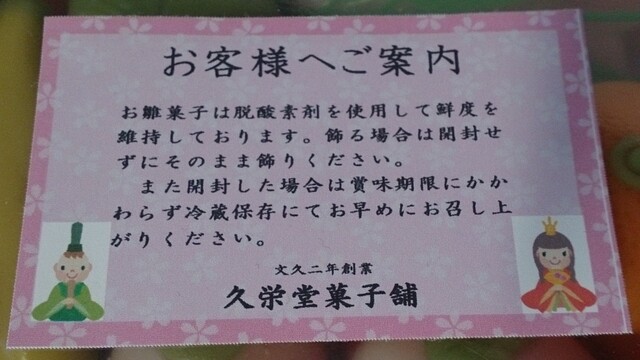 お客様へご案内
お雛菓子は脱酸素剤を使用して鮮度を
維持しております。飾る場合は開封せ
ずにそのまま飾りください。
また開封した場合は賞味期限にかか
わらず冷蔵保存にてお早めにお召し上
がりください。
文久二年創業
久栄堂菓子舗